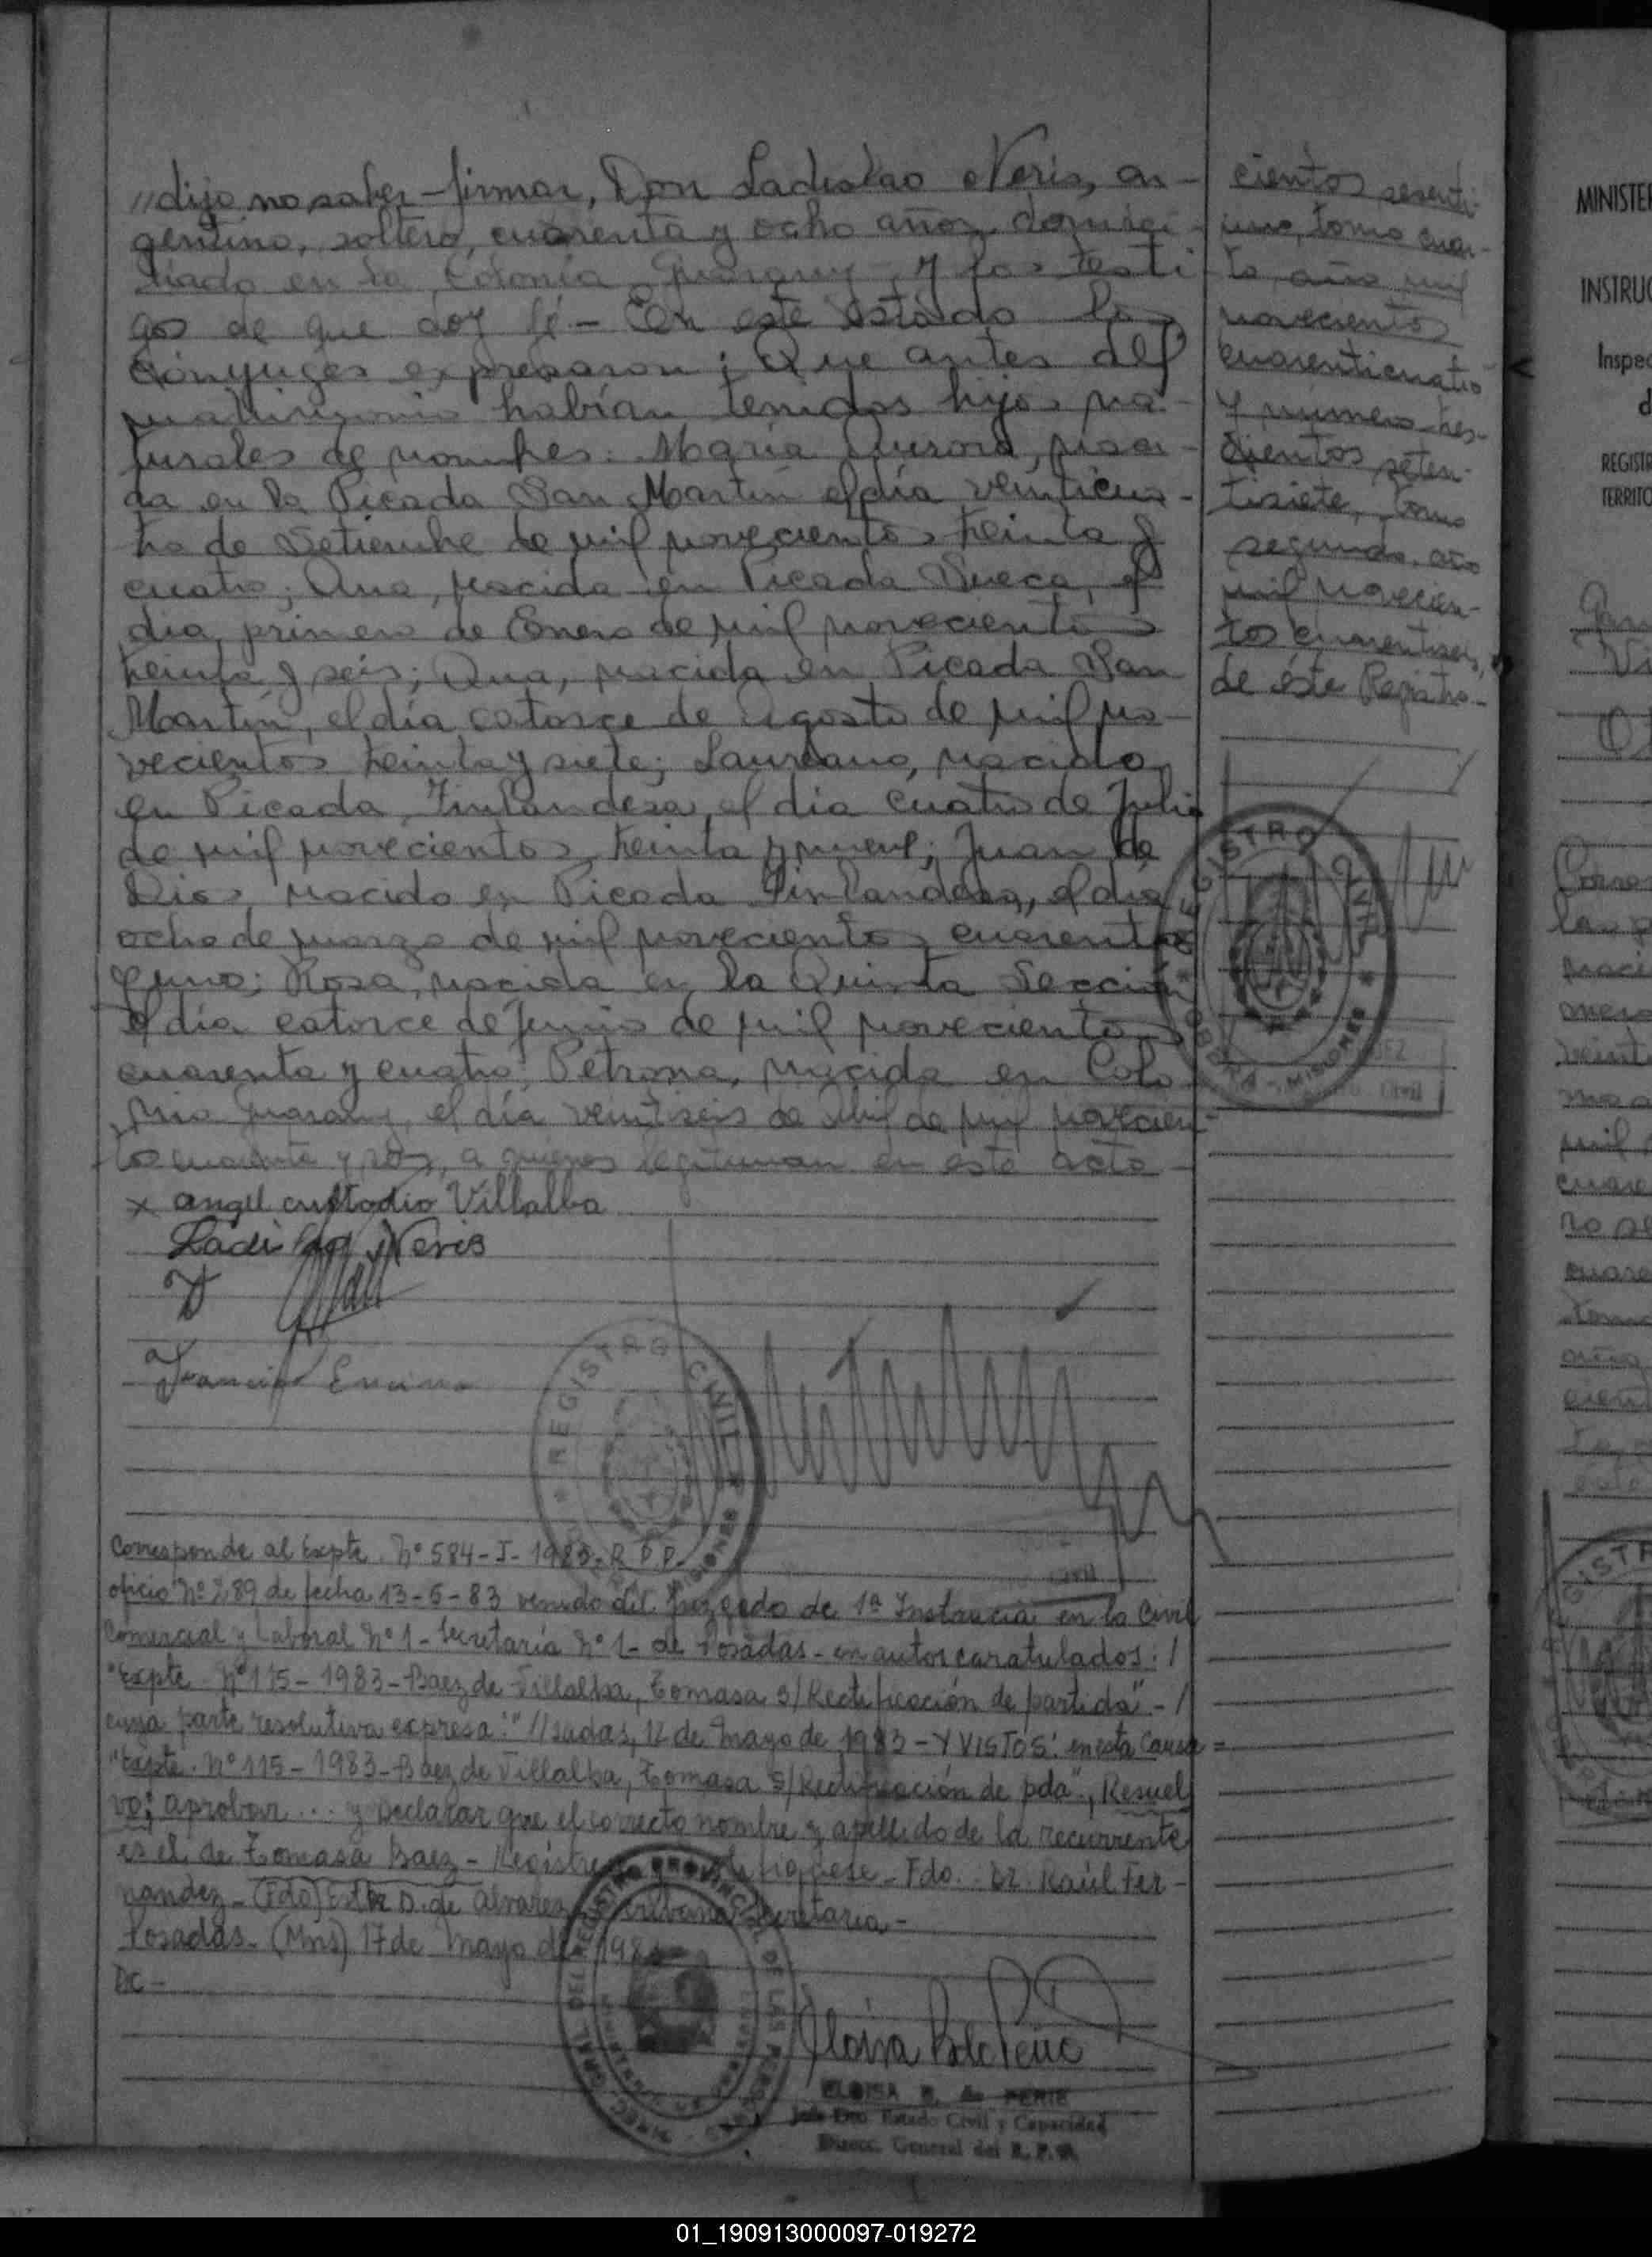 //dijo no saber firmar, Don Ladislao Neris, ar-
gentino, soltero, cuarenta y ocho años, domici-
liado en la Colonia Guarany y los testi-
gos de que doy fé - En este estado los
cónyuges expresaron: Que antes del
matrimonio habían tenidos hijos na-
turales de nombres: María Aurora, naci-
da en la Picada San Martín el día veinticua-
tro de Setiembre de mil novecientos treinta y
cuatro; Ana, nacida en Picada Sueca, el
día primero de Enero de mil novecientos
treinta y seis; Ana, nacida en Picada San
Martín, el día catorce de Agosto de mil no-
vecientos treinta y siete; Laureano, nacido
en Picada Finlandesa, el día cuatro de Julio
de mil novecientos treinta y nueve; Juan de
Dios, nacido en Picada Finlandesa, el día
ocho de marzo de mil novecientos cuarenta
y uno; Rosa, nacida en la Quinta Sección
el día catorce de Junio de mil novecientos
cuarenta y cuatro; Petrona, nacida en Colo-
nia Guarany, el día veintiseis de Abril de mil novecien-
tos cuarenta y a quienes legitiman en este acto -
x angel custodio Villalba
Ladislao Neris
Francisco Encina
cientos sesenti-
uno, tomo cuar-
to, año mil
novecientos
cuarenticuatro
y número tres-
cientos seten-
tisiete, tomo
segundo, año
mil novecien-
tos cuarentiseis,
de éste Registro.-
REGISTRO CIVIL
MISIONES
REGISTRO CIVIL
MISIONES
Corresponde al Expte. Nº 584-I-1983-R.P.P.
oficio Nº 289 de fecha 13-5-83 venido del Juzgado de 1ª Instancia en lo Civil
Comercial y Laboral Nº 1- Secretaría Nº 1- de Posadas- en autos caratulados: /
"Expte. Nº 115-1983-Baez de Villalba, Tomasa S/Rectificación de partida"- /
cuya parte resolutiva expresa: "//sadas, 12 de mayo de 1983 - Y VISTOS: en esta Causa =
"Expte. Nº 115-1983-Baez de Villalba, Tomasa S/Rectificación de pda", Resuel
vo: aprobar... y Declarar que el correcto nombre y apellido de la recurrente
es el de Tomasa Baez - Regístrese y notifíquese - Fdo. Dr. Raúl Fer-
nandez - (Fdo) Esther D. de Alvarez Escribana Secretaria -
Posadas. (Mns) 17 de mayo de 198
DC -
REGISTRO PROVINCIAL DE LAS PERSONAS
ELOISA B. de PERIE
Jefe Dto. Estado Civil y Capacidad
Direcc. General del R. P. P.
MINISTE
INSTRUC
Inspec
d
REGISTR
TERRITO
01_190913000097-019272